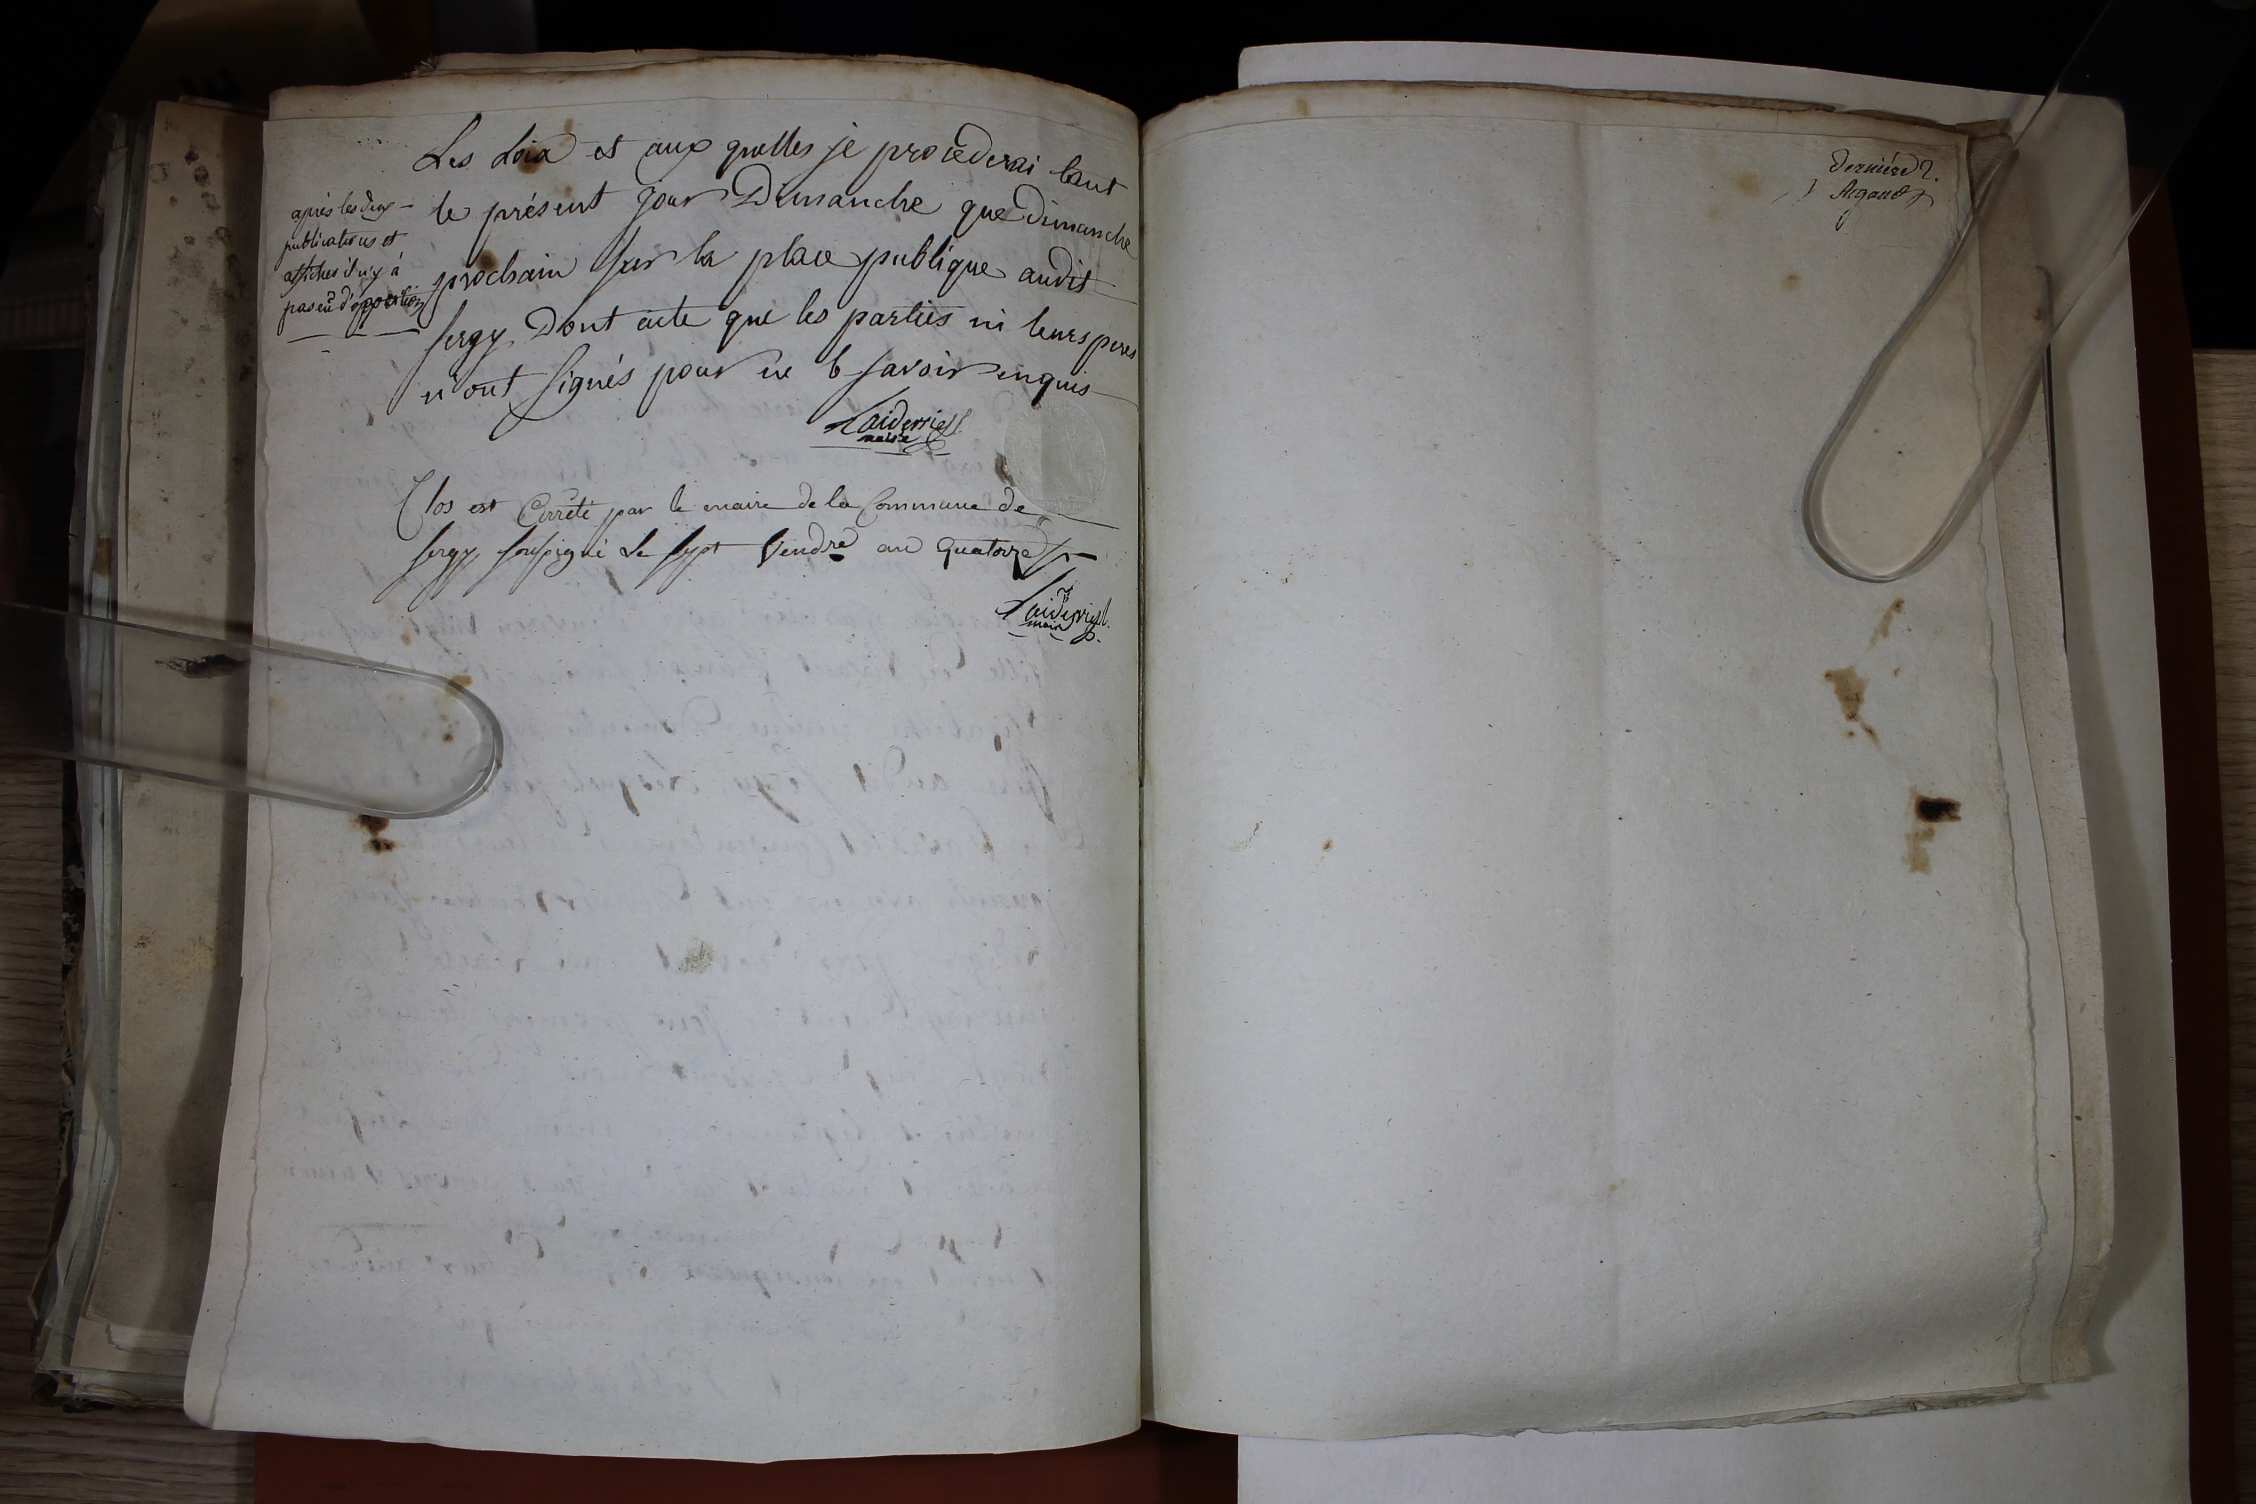 Les Loix et aux quelles je procéderai tant
le présent jour Dimanche que dimanche
prochain sur la place publique audit
Sergy. Dont acte que les parties ni leurs peres
n'ont signés pour ne le savoir enquis
après les deux
publications et
affiches il n'y à
pas eu d'opposition
maire
Clos et arrêté par le maire de la Commune de
Sergy soussigné Le sept Vendre an quatorze
maire
derniére 2.
Argaud